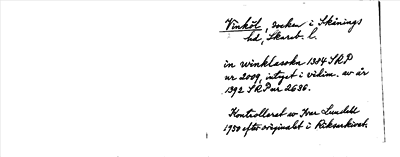 Vinköl, socken i Skånings
hd, Skarab. l.
in winklasokn 1384 SRP
nr 2009, intyget i vidim. av år
1392 SRP nr 2636.
Kontrollerat av Ivar Lundahl
1950 efter originalet i Riksarkivet.